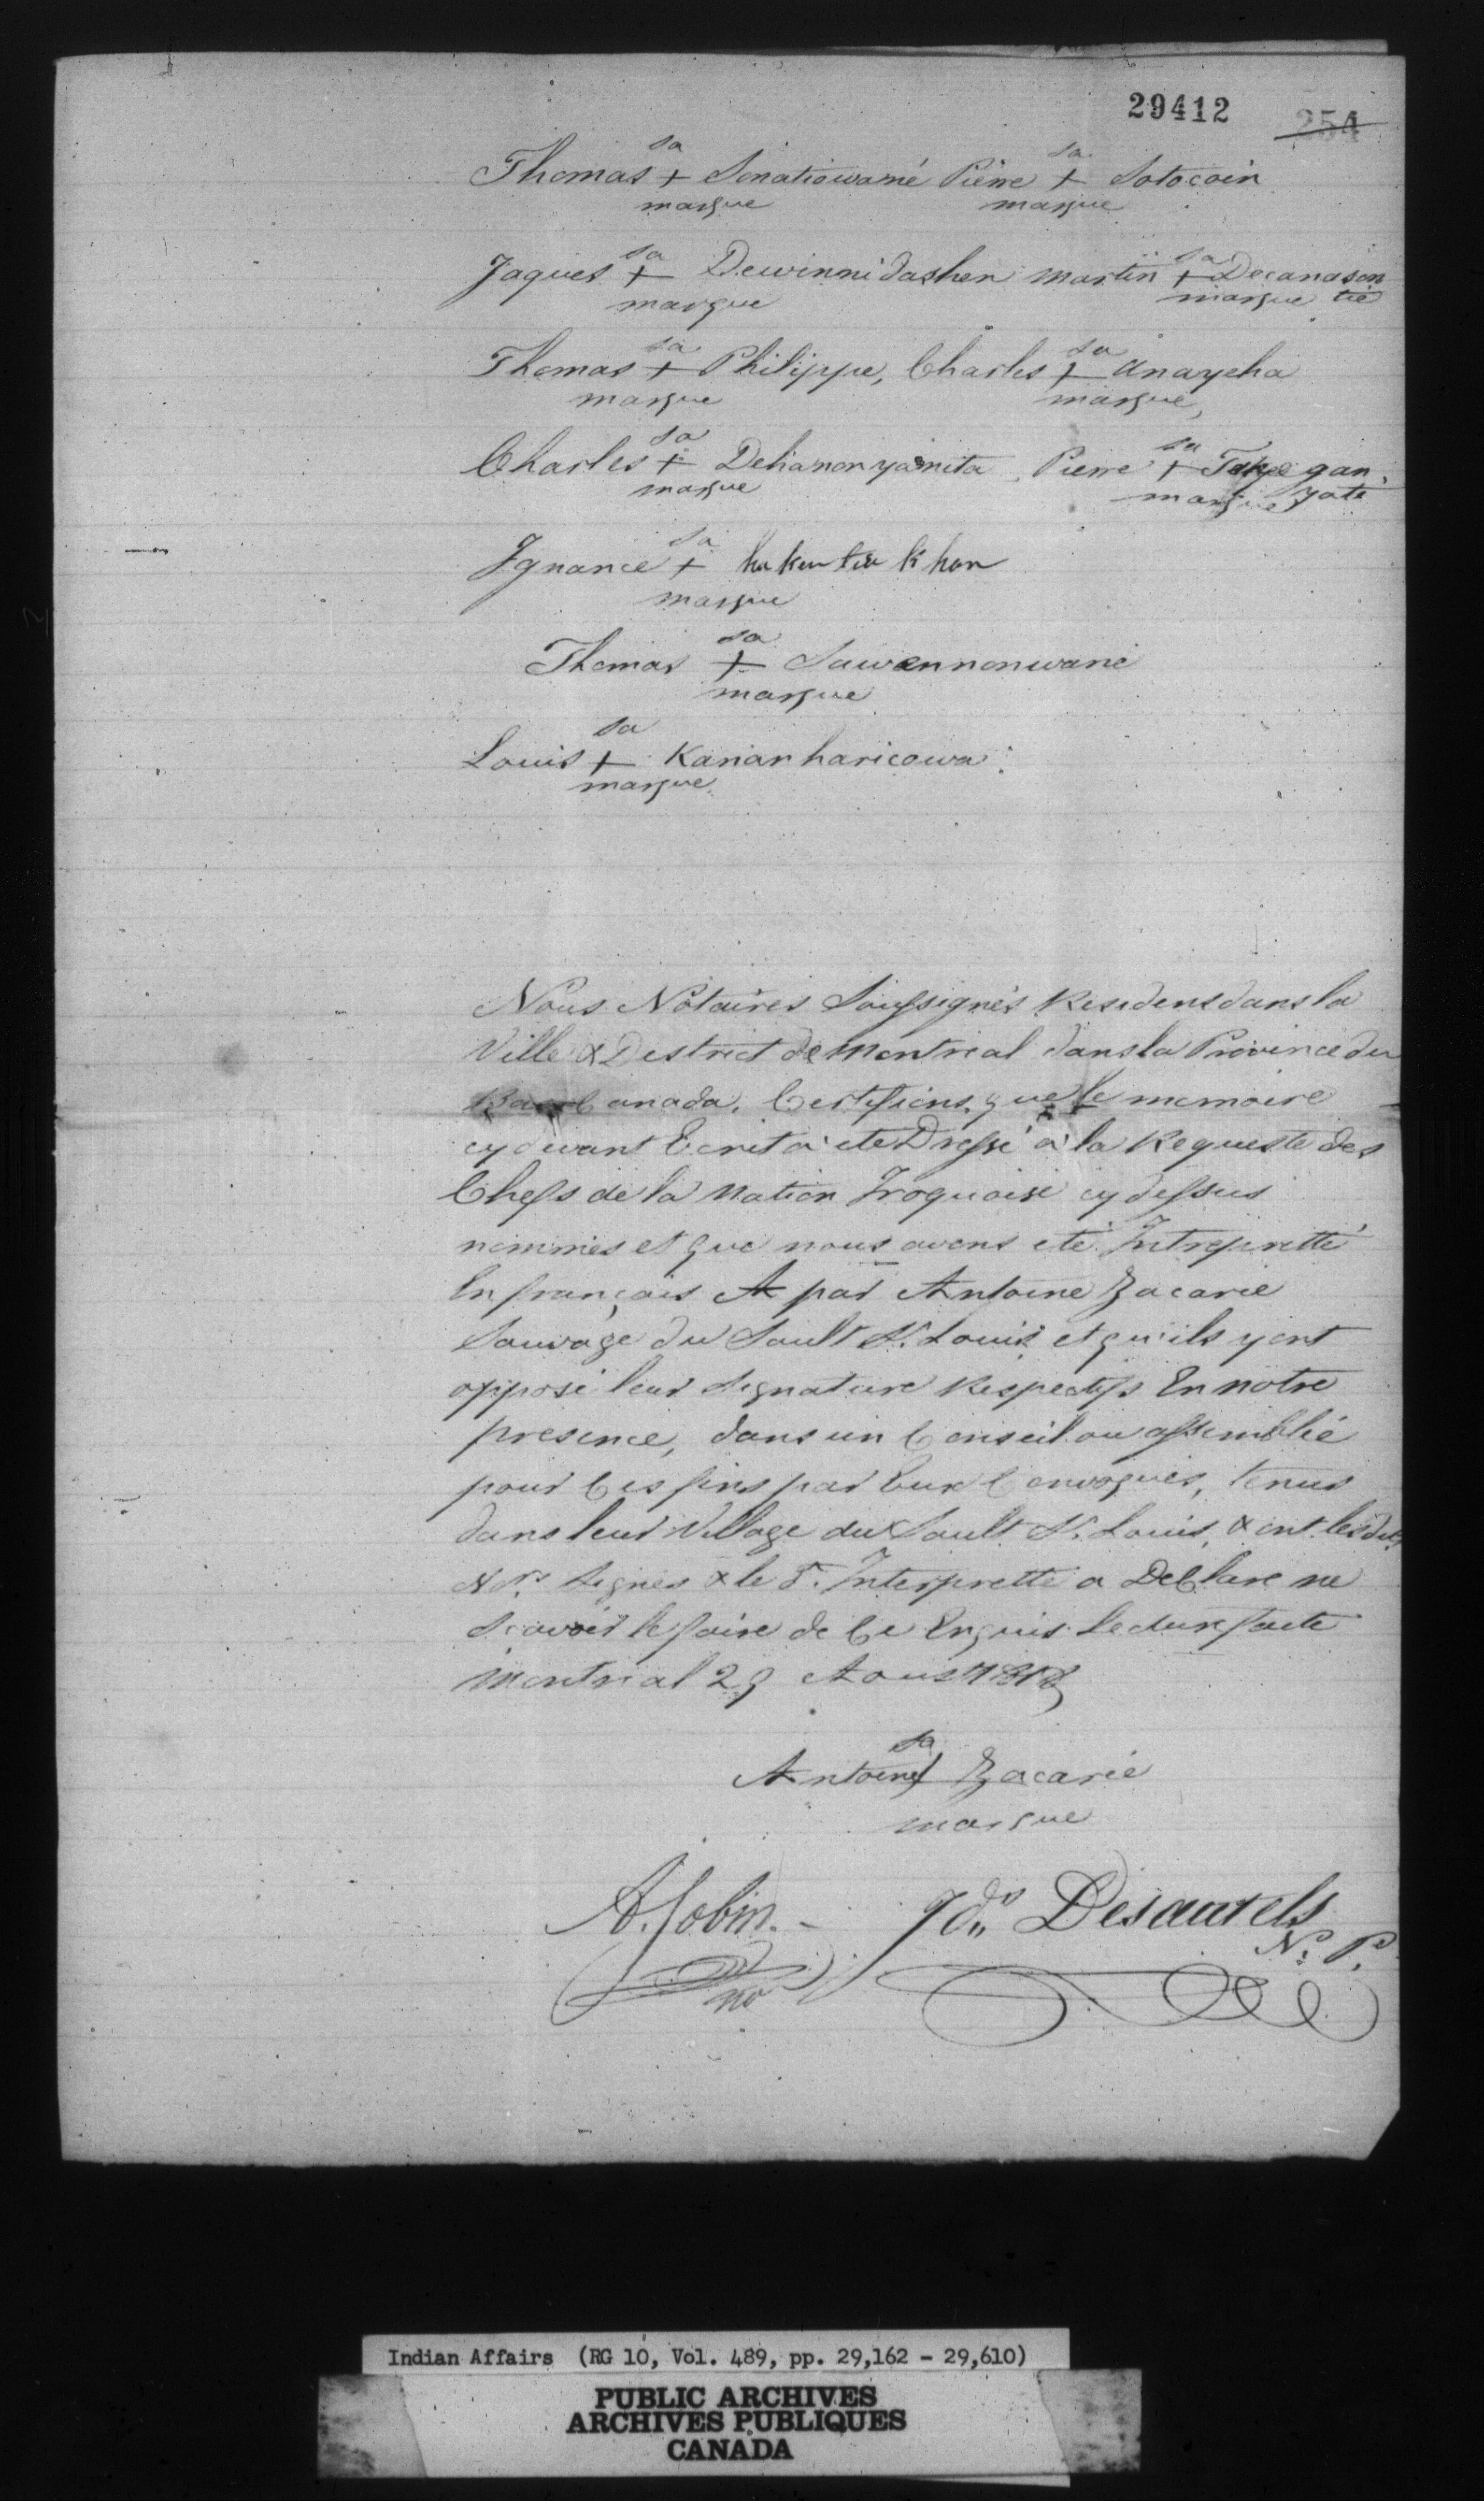 29412 254
sa sa
Thomas + Sonatiowané Pierre + Sotocoin
marque marque
sa sa
Jaques + Dewinnidashen martin + Decanason
marque marque tié
sa sa
Thomas + Philippe, Charles + Anaycha
marque marque,
sa sa
Charles + Dehanonyanita, Pierre + gan
marque marque yate
sa
Ignance + khon
marque
sa
Thomas + Sawennonwané
marque
sa
Louis + Kanarharicowa
marque
Nous Notaires Soussignés Residens dans la
Ville & District de Montreal dans la Province du
Bas Canada, Certifions, que le memoire
cy devant Ecrit a été Dressé a la Requeste des
Chefs de la Nation Iroquoise cy dessus
nommés et que nous avons eté Intrepretté
En français A par Antoine Zacarie
Sauvage du Sault St. Louis et qu'ils y ont
opposé leur Signature Respectifs En notre
presence, dans un Conseil ou assemblée
pour Ces fins par Eux Convoqués, tenus
dans leur Village du Sault St. Louis, & ont les dts
Nrs. Signés & le d. Interprette a DeClare ne
Scavoir le faire de Ce Enquis Lecture faite
Montreal 29 Aoust 1818
sa
Antoine + Zacarie
marque
A. Jobin. Jos. Desautels
no N. P.
Indian Affairs (RG 10, Vol. 489, pp. 29,162 - 29,610)
PUBLIC ARCHIVES
ARCHIVES PUBLIQUES
CANADA